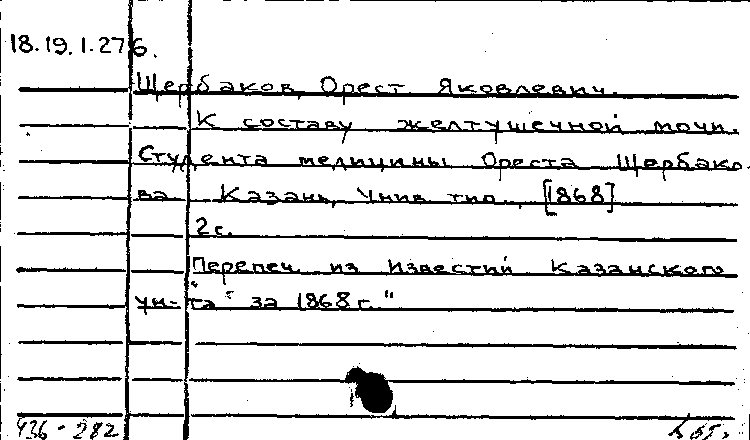 18.19.1.276.
Щербаков, Орест Яковлевич.
К составу желтушечной мочи.
Студента медицины Ореста Щербако-
ва. Казань, Унив. тип., [1868]
2с.
Перепеч. из "Известий Казанского
ун-та" за 1868 г."
436-282